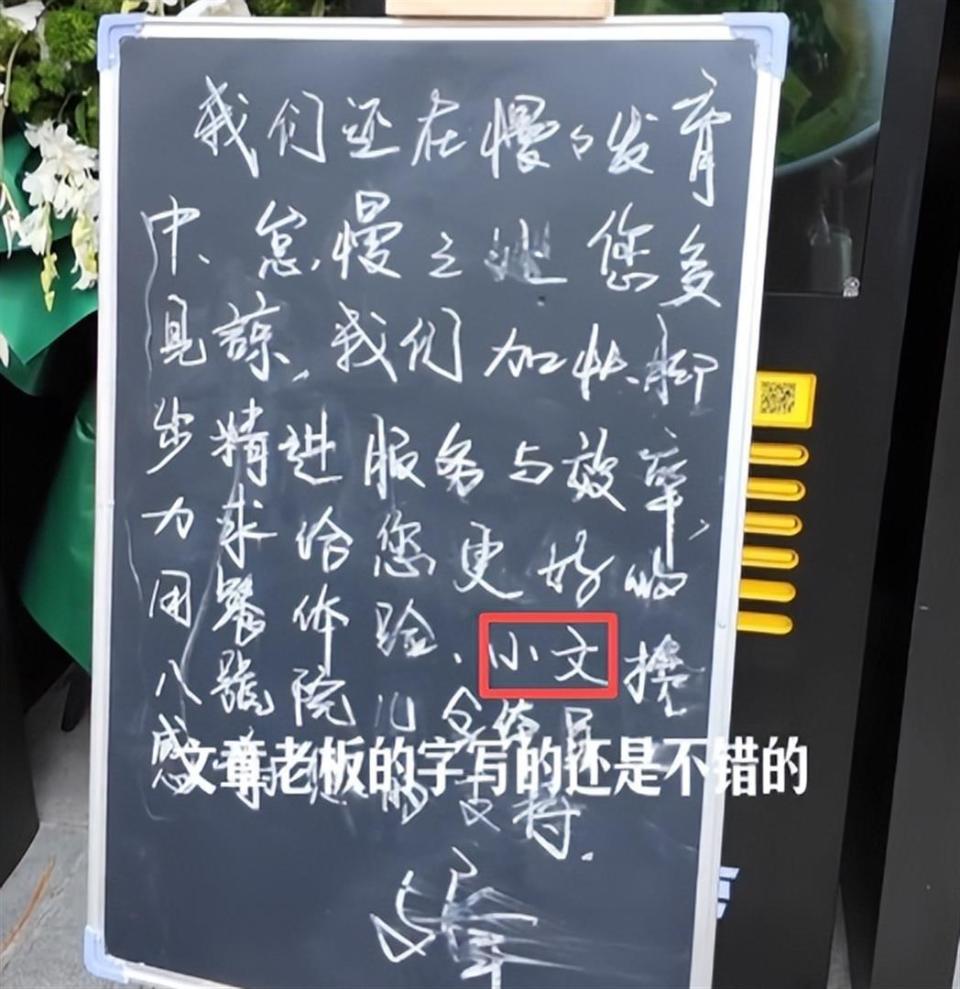 我们还在慢々发育
中、怠慢之处您多
见谅、我们加快脚
步精进服务与效率,
力求给您更好的
用餐体验、小文携
八號院儿全体员
文章老板的字写的还是不错的
感谢您的支持.